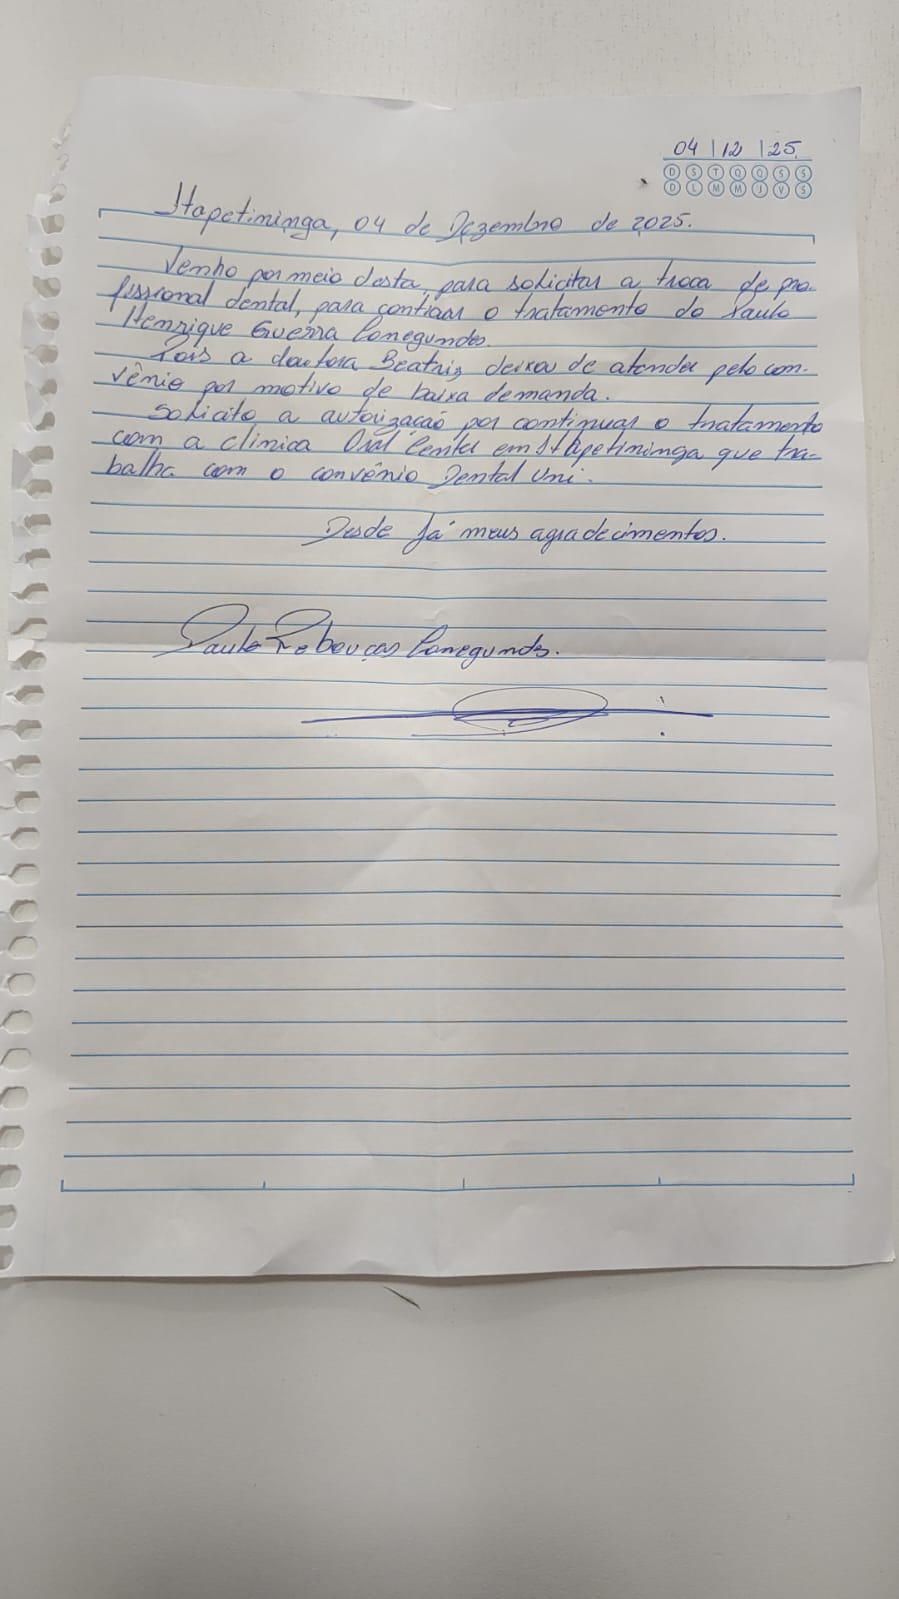 04 | 12 | 25.
D S T Q Q S S
D L M M J V S
Itapetininga, 04 de Dezembro de 2025.
Venho por meio desta, para solicitar a troca de pro-
fissional dental, para continar o tratamento do Paulo
Henrique Guerra Conegundes.
Pois a doutora Beatriz deixou de atender pelo con-
vênio por motivo de baixa demanda.
Solicito a autorização por continuar o tratamento
com a clinica Oral Center em Itapetininga que tra-
balha com o convênio Dental Uni.
Desde já meus agradecimentos.
Paulo Rebouças Conegundes.